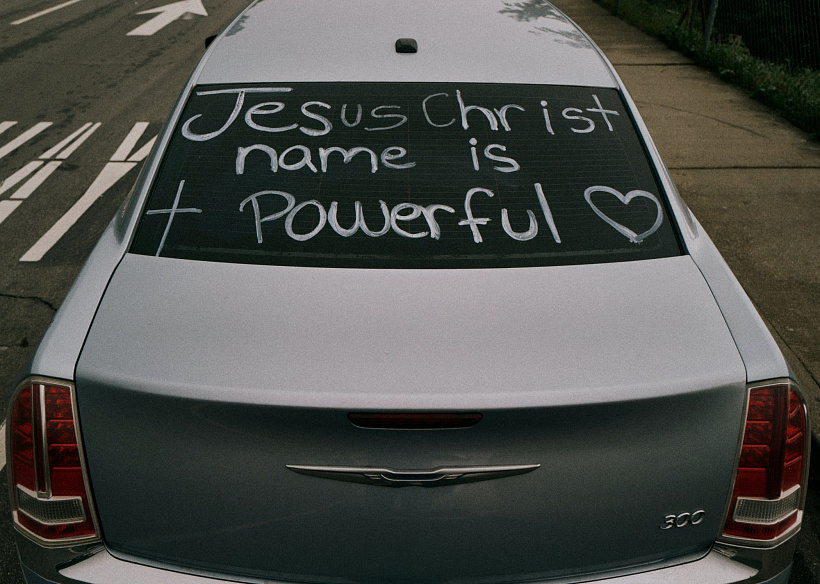 Jesus Christ
name is
Powerful
300